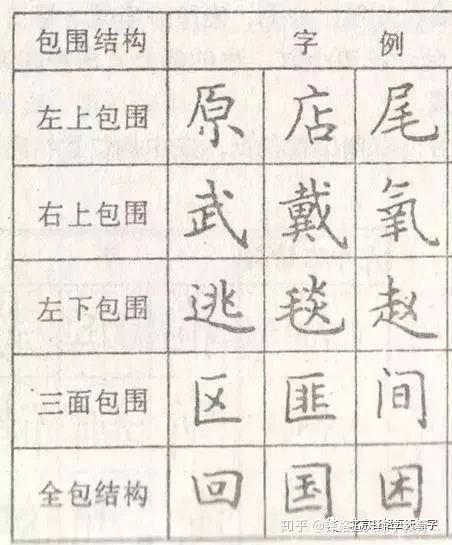 包围结构 字 例
左上包围 原 店 尾
右上包围 武 戴 氧
左下包围 逃 毯 赵
三面包围 区 匪 间
全包结构 回 国 困
知乎